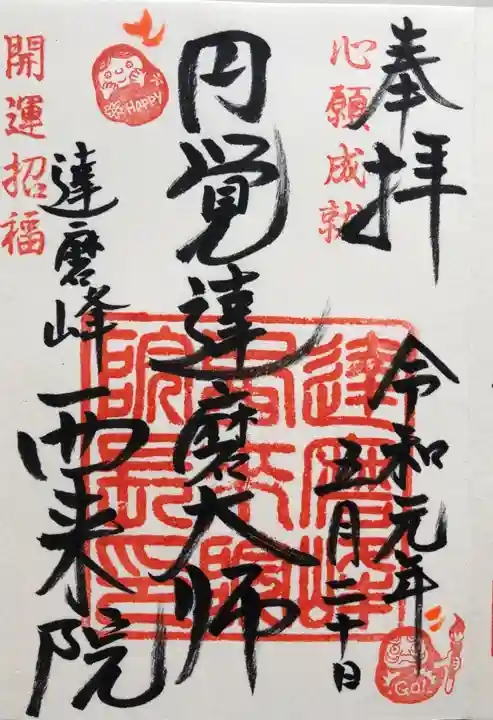 奉拝
心願成就
令和元年
五月二十日
円覚達磨大師
HAPPY
開運招福
達磨峰
西来院
Go!